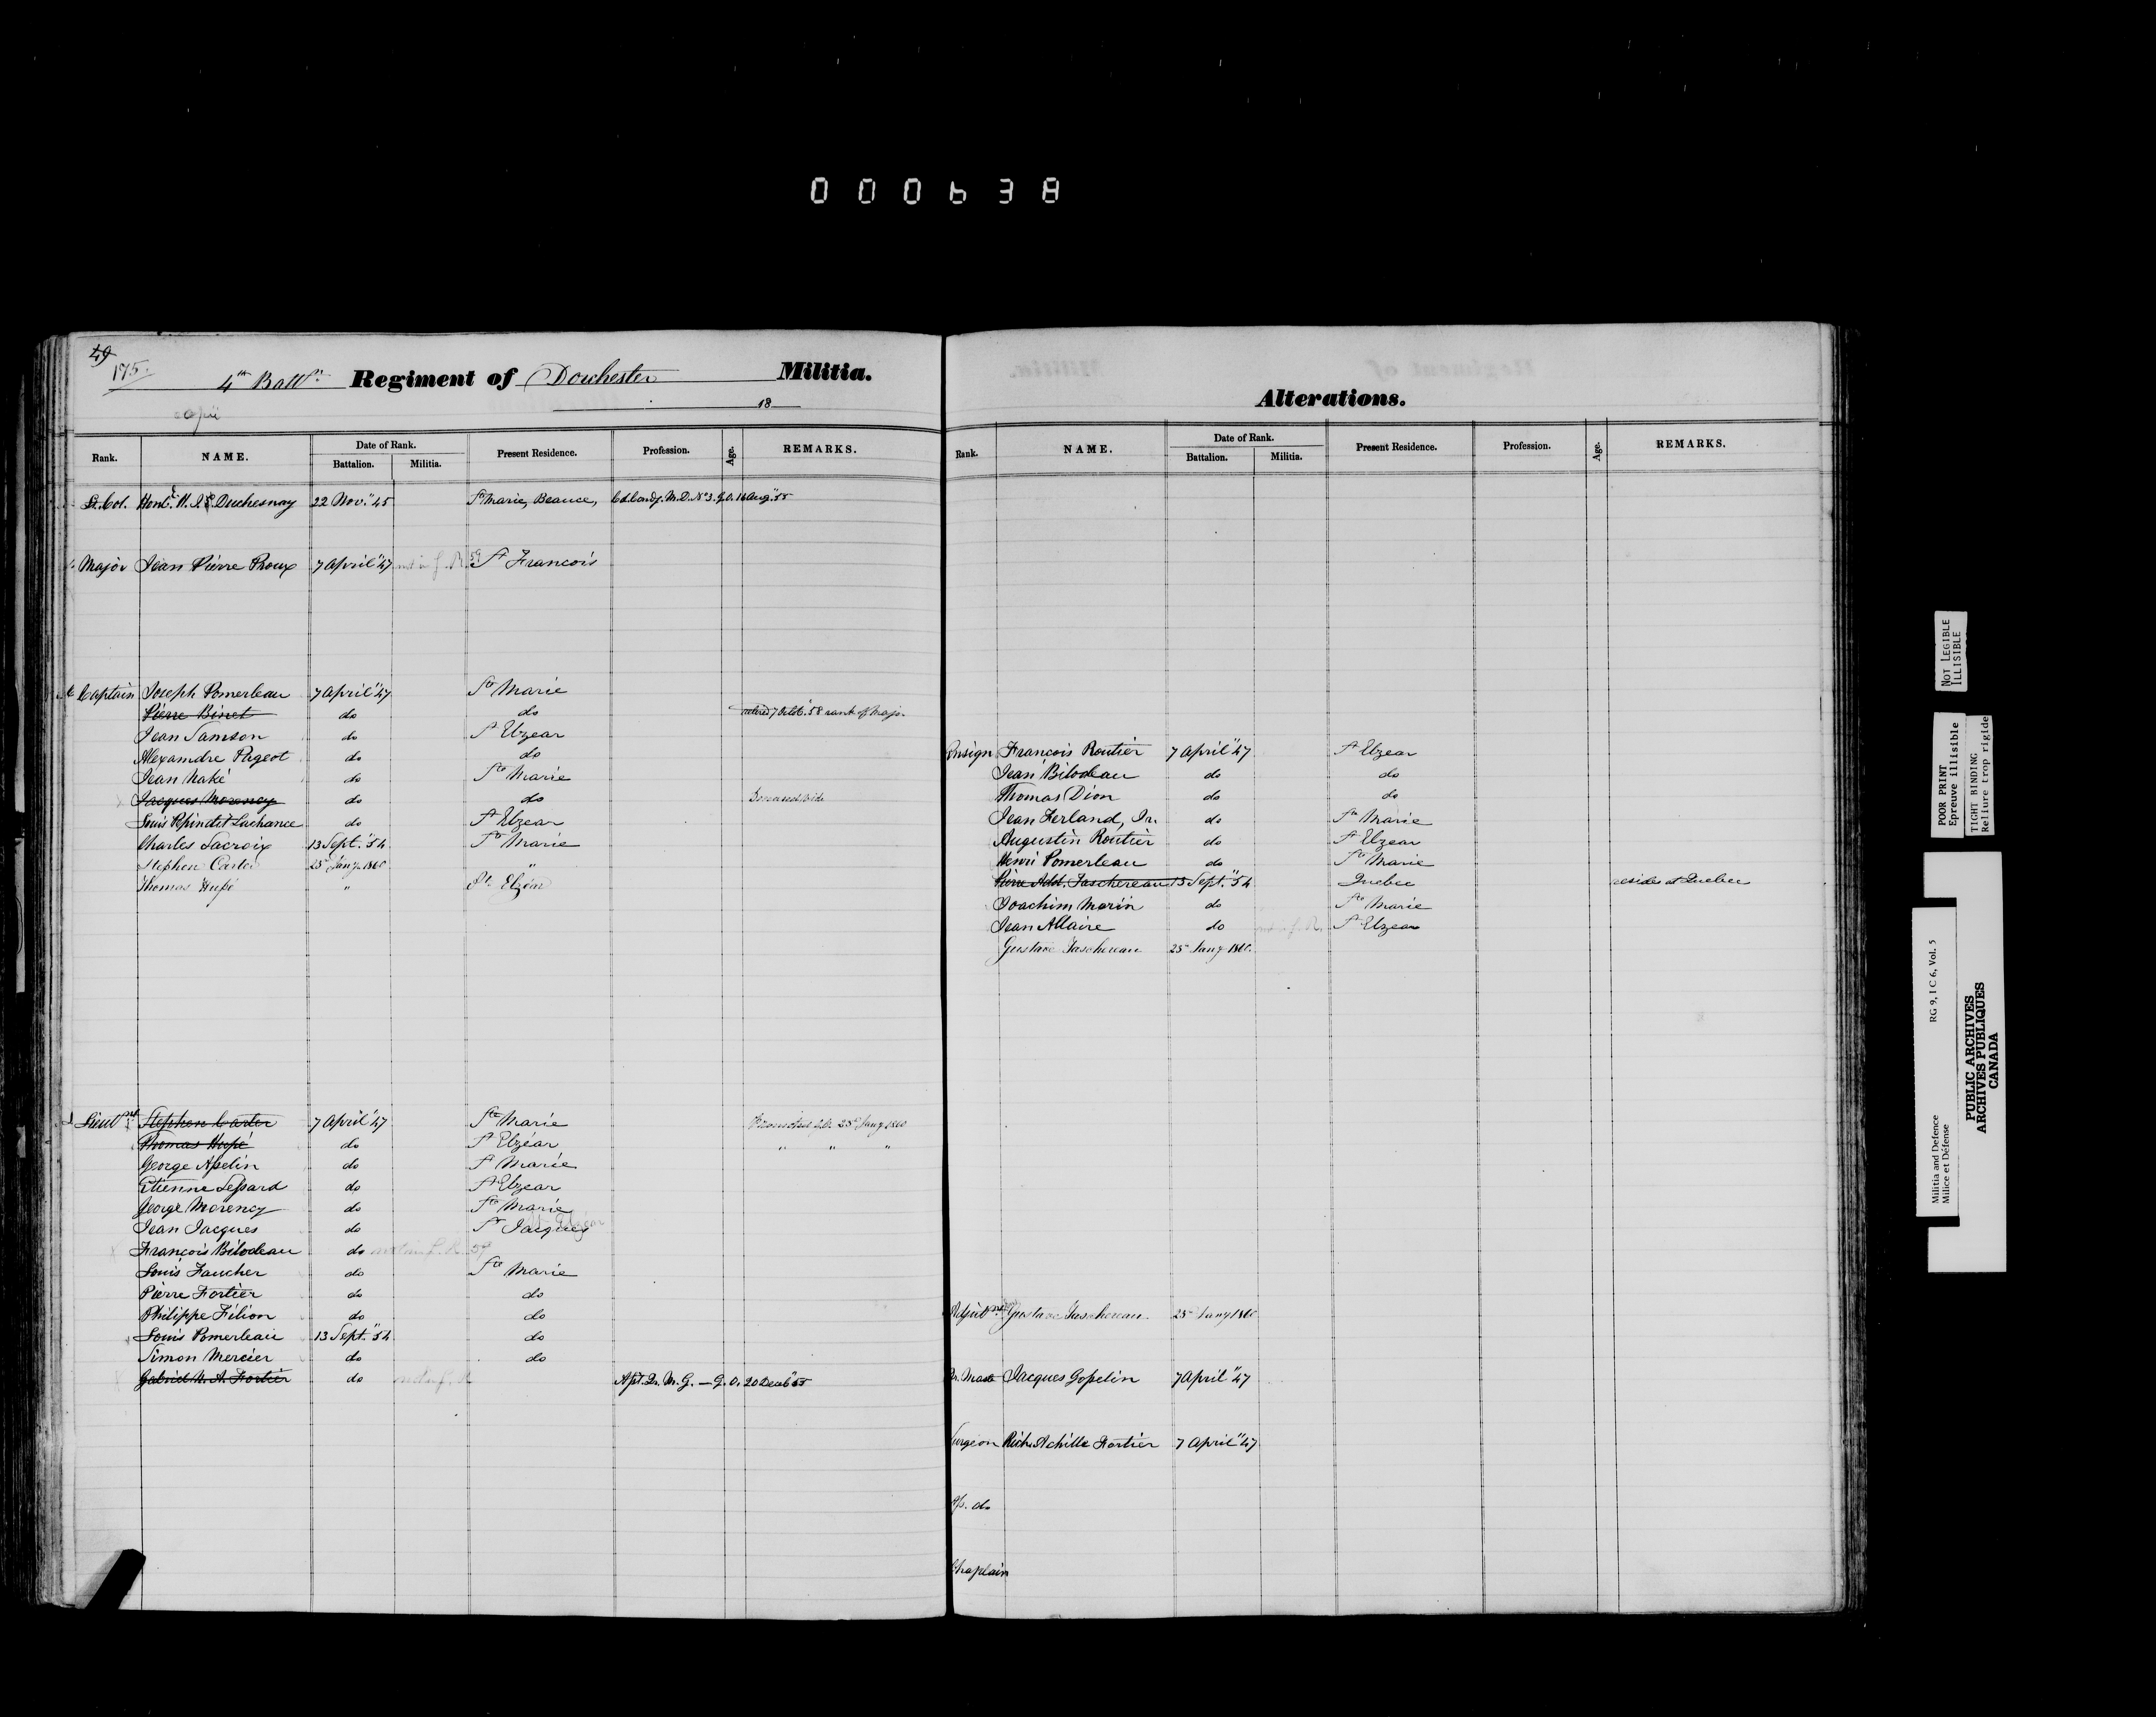 000638
49
175.
4th Battn. Regiment of Dorchester Militia.
18
Rank. NAME. Date of Rank. Battalion. Militia. Present Residence. Profession. Age. REMARKS.
Lt. Col. Honble. Duchesnay 22 Nov. "45 Ste Marie, Beauce, Col. Comdg. M.D. No 3. G.O. 16 Aug. "55
Major Jean Pierre Proux 7 April "47 not in f. R. 59 St Francois
Captain Joseph Pomerleau 7 April "47 Ste Marie
Pierre Binet do do retired 7 Octob. '58 rank of Major
Jean Samson do St Elzear
Alexandre Pageot do do
Jean Naké do Ste Marie
Jacques Morency do do
Louis Lachance do St Elzear
Charles Lacroix 13 Sept. "54 Ste Marie
Stephen Carter 25 Jany. 1860 "
Thomas Hupé " St. Elzéar
Lieutnt Stephen Carter 7 April "47 Ste Marie Promoted G.O. 25 Jany 1860
Thomas Hupé do St Elzéar " " "
George Asselin do St Marie
Etienne Lessard do St Elzear
George Morency do Ste Marie
Jean Jacques do St Jacques
François Bilodeau do not in f. R. 59
Louis Faucher do Ste Marie
Pierre Fortier do do
Philippe Filion do do
Louis Pomerleau 13 Sept. "54 do
Simon Mercier do do
Gabriel N. A. Fortier do not in f. R. Ast. Qr. M. G. — G. O. 20 Decb "55
Alterations.
Rank. NAME. Date of Rank. Battalion. Militia. Present Residence. Profession. Age. REMARKS.
Ensign François Routier 7 April "47 St Elzear
Jean Bilodeau do do
Thomas Dion do do
Jean Ferland, Jr. do Ste Marie
Augustin Routier do St Elzear
Henri Pomerleau do Ste Marie
Pierre Taschereau 13 Sept. "54 Quebec resides at Quebec
Joachim Morin do Ste Marie
Jean Allaire do not in f. R. St Elzear
Gustave Taschereau 25 Jany 1860.
Adjutnt Gustave Taschereau. 25 Jany 1860
Qr. Mast Jacques Gosselin 7 April "47
Surgeon Richd Achille Fortier 7 April "47
As. do
Chaplain
NOT LEGIBLE
ILLISIBLE
POOR PRINT
Epreuve illisible
TIGHT BINDING
Reliure trop rigide
Militia and Defence RG 9, I C 6, Vol. 5
Milice et Défense
PUBLIC ARCHIVES
ARCHIVES PUBLIQUES
CANADA